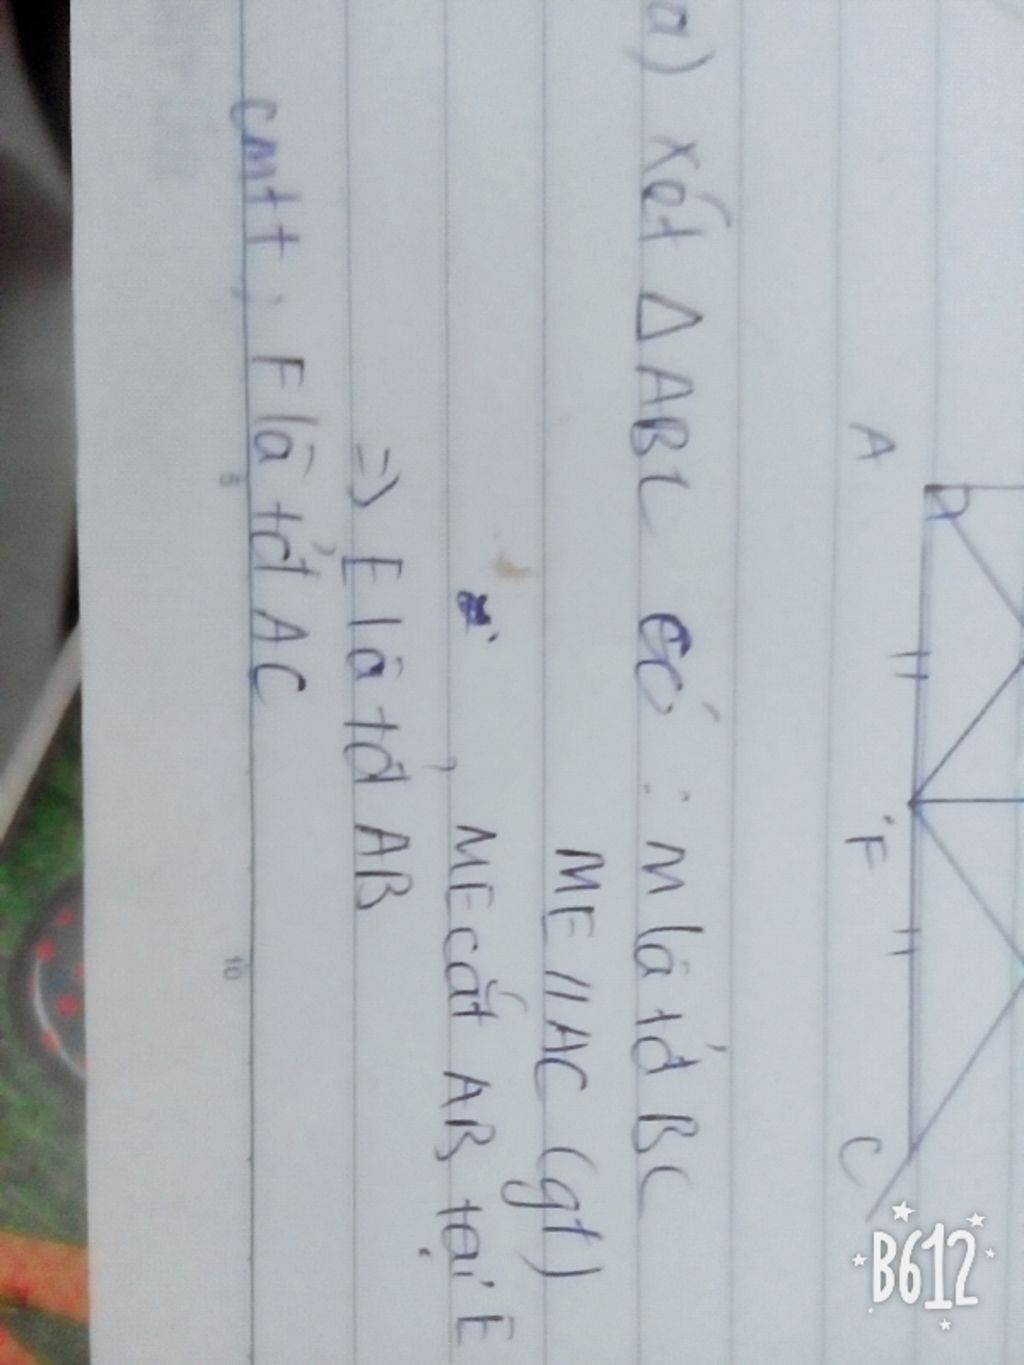 A
F
C
a) Xét Δ ABC có : M là tđ BC
ME // AC (gt)
, ME cắt AB tại E
=> E là tđ AB
cmtt ; F là tđ AC
5
10
B612